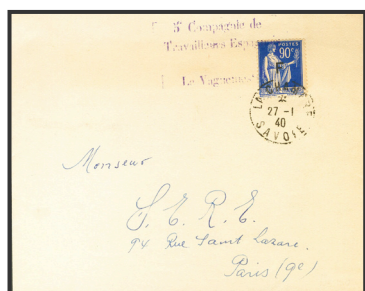 5e Compagnie de
Travailleurs
Le Vaguemestre
POSTES
90c
LA
27 -1
40
SAVOIE
Monsieur
S. E. R. E.
94 Rue Saint Lazare.
Paris (9e)